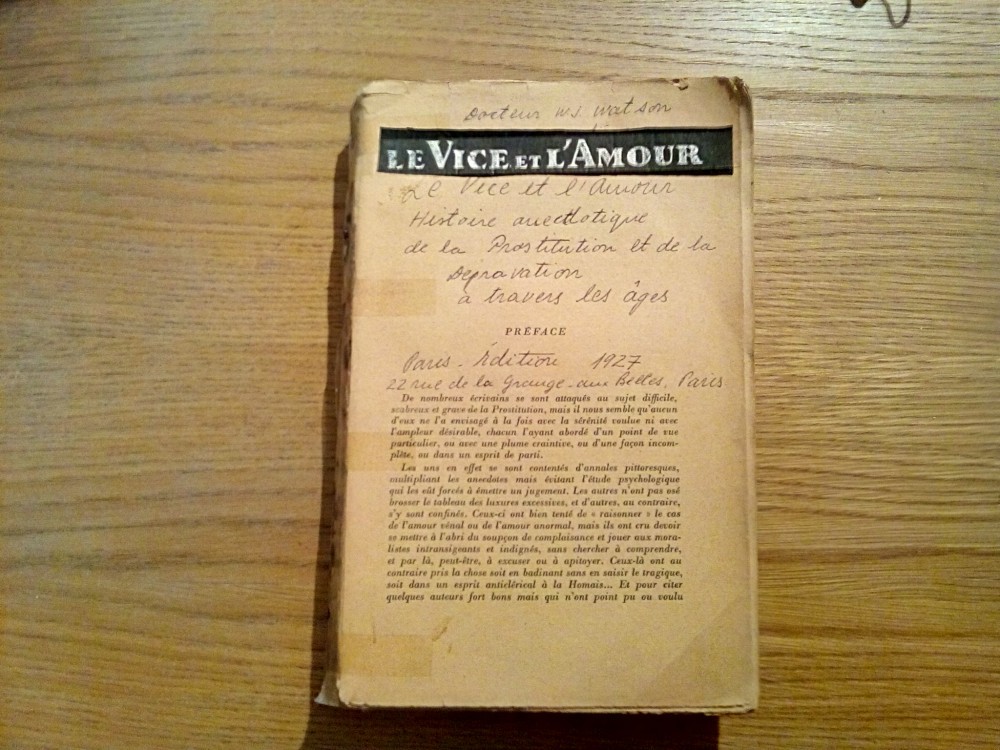 Docteur W.S. Watson
LE VICE ET L'AMOUR
Le Vice et l'Amour
Histoire anecdotique
de la Prostitution et de la
Dépravation
à travers les âges
PRÉFACE
Paris - Édition 1927
22 rue de la Grange-aux Belles, Paris
De nombreux écrivains se sont attaqués au sujet difficile,
scabreux et grave de la Prostitution, mais il nous semble qu'aucun
d'eux ne l'a envisagé à la fois avec la sérénité voulue ni avec
l'ampleur désirable, chacun l'ayant abordé d'un point de vue
particulier, ou avec une plume craintive, ou d'une façon incom-
plète, ou dans un esprit de parti.
Les uns en effet se sont contentés d'annales pittoresques,
multipliant les anecdotes mais évitant l'étude psychologique
qui les eût forcés à émettre un jugement. Les autres n'ont pas osé
brosser le tableau des luxures excessives, et d'autres, au contraire,
s'y sont confinés. Ceux-ci ont bien tenté de « raisonner » le cas
de l'amour vénal ou de l'amour anormal, mais ils ont cru devoir
se mettre à l'abri du soupçon de complaisance et jouer aux mora-
listes intransigeants et indignés, sans chercher à comprendre,
et par là, peut-être, à excuser ou à apitoyer. Ceux-là ont au
contraire pris la chose soit en badinant sans en saisir le tragique,
soit dans un esprit anticlérical à la Homais... Et pour citer
quelques auteurs fort bons mais qui n'ont point pu ou voulu